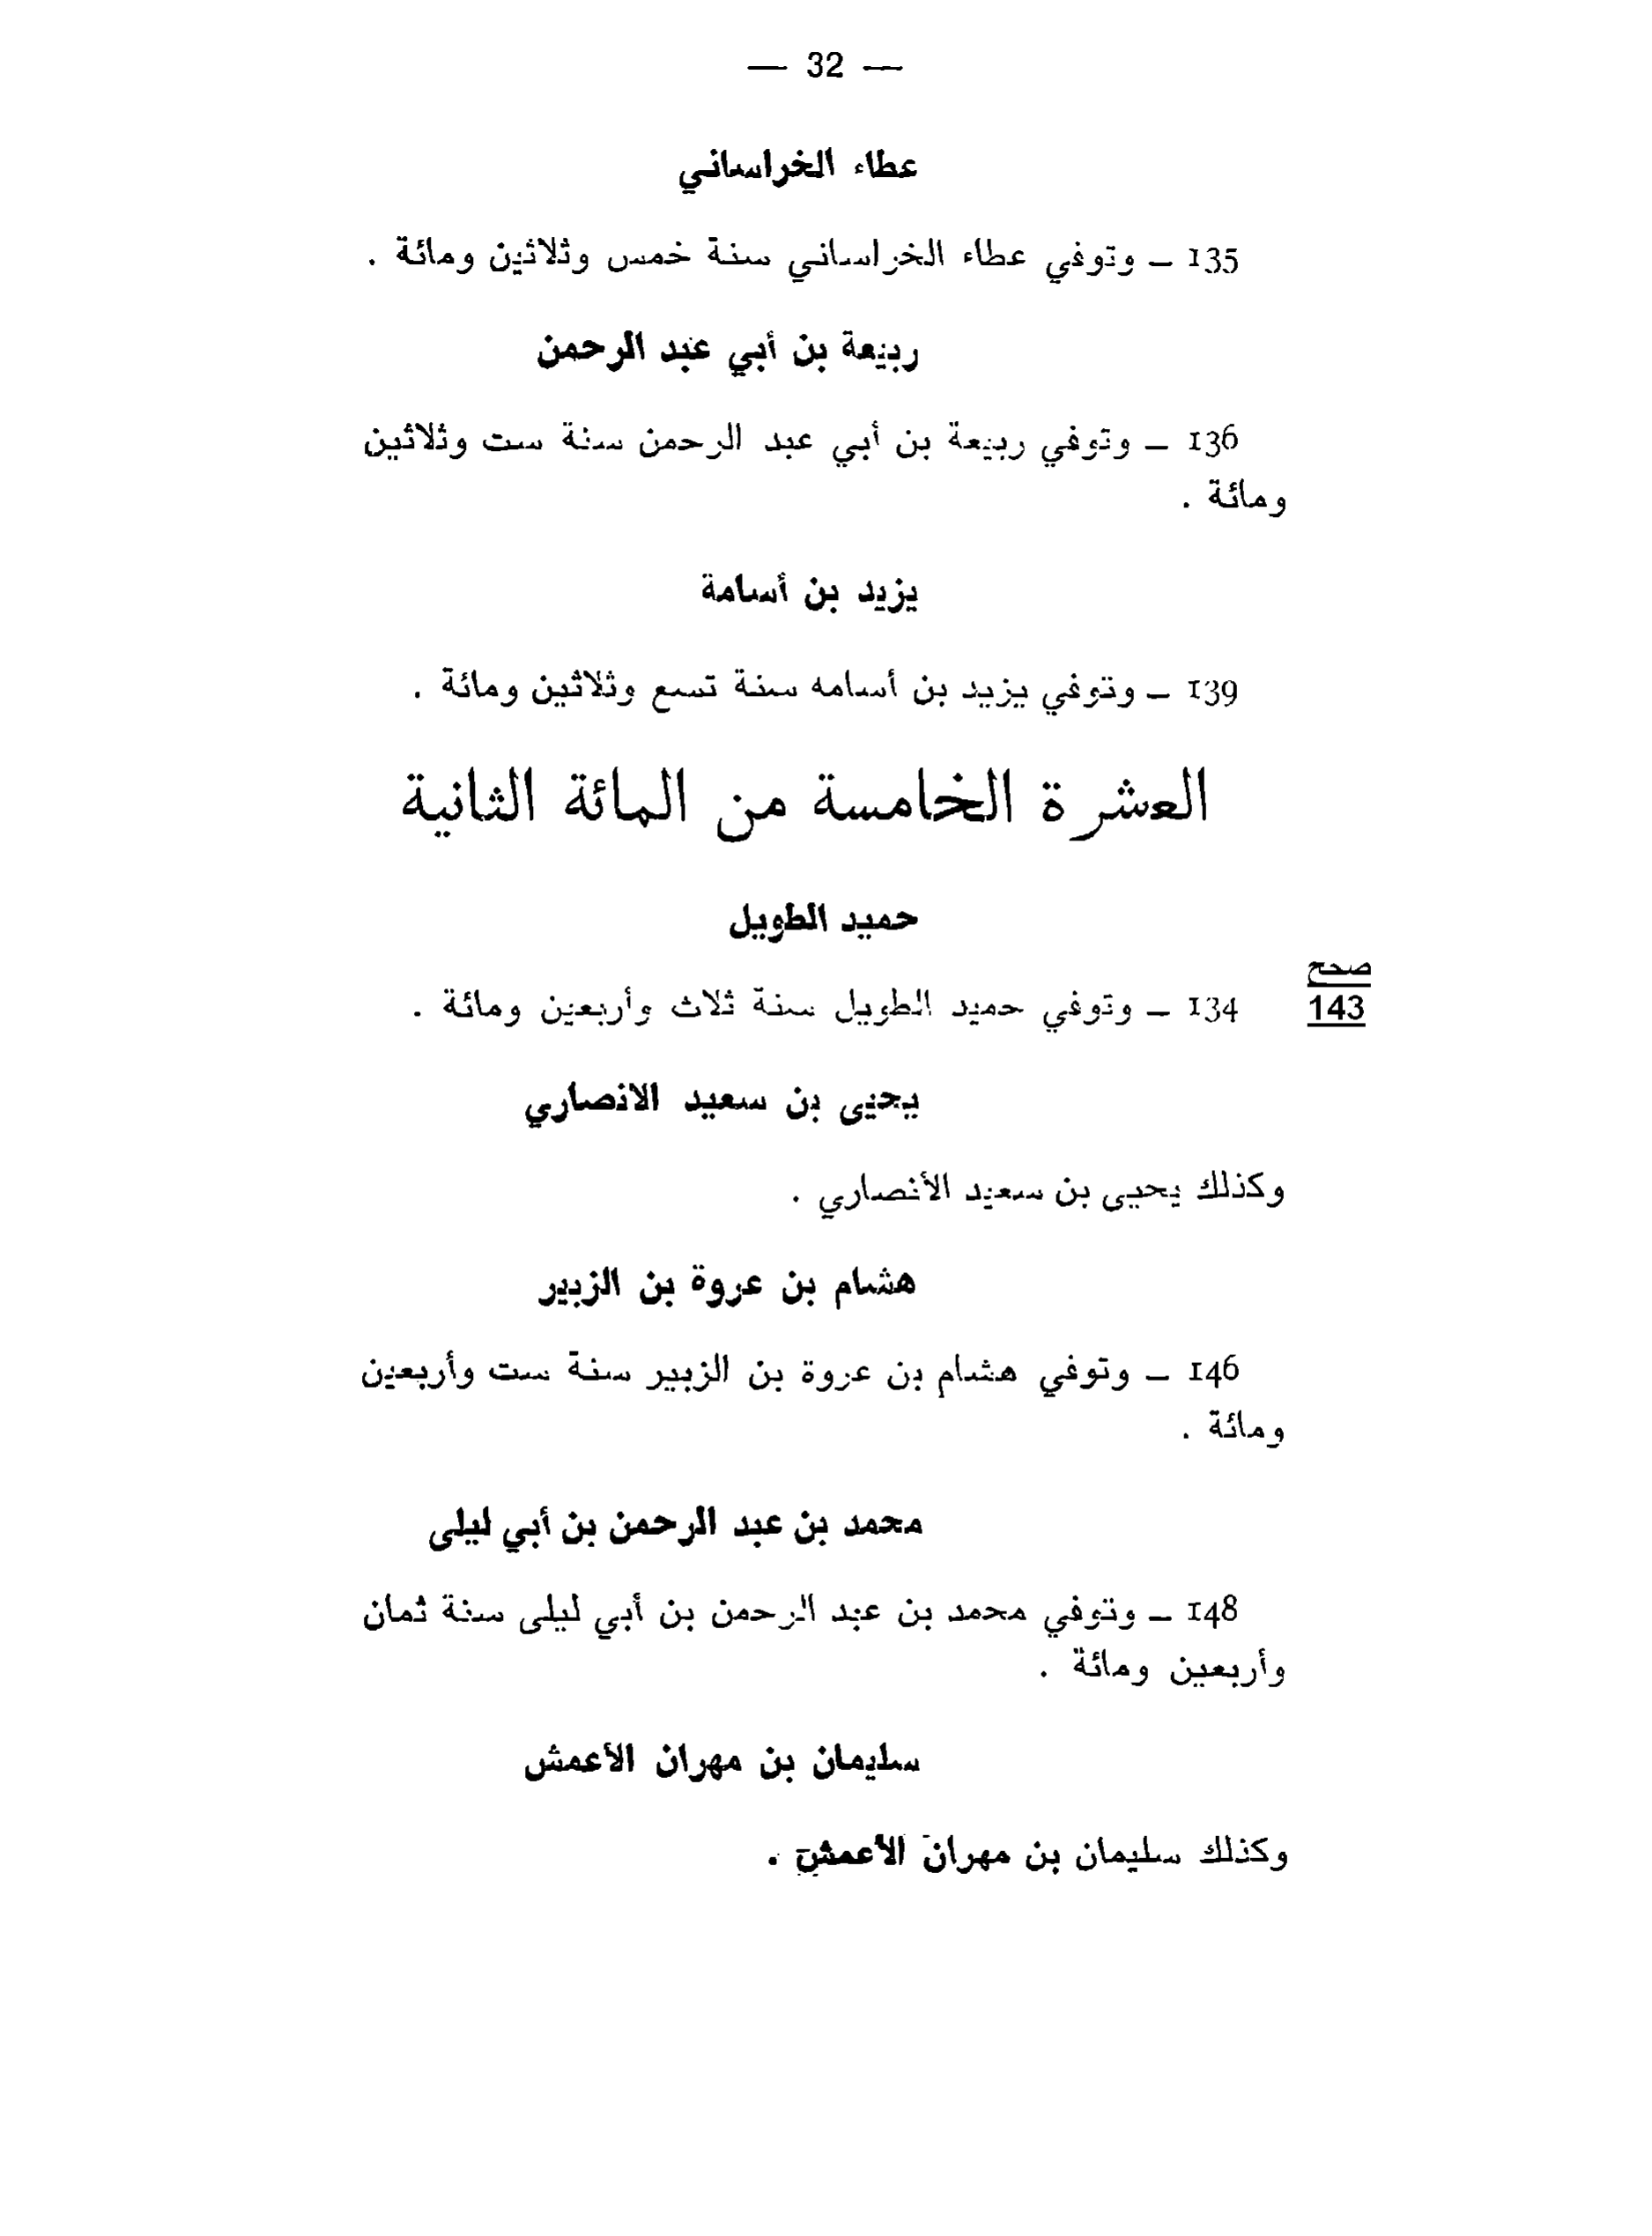 — 32 —
عطاء الخراساني
135 – وتوفي عطاء الخراساني سنة خمس وثلاثين ومائة .
ربيعة بن أبي عبد الرحمن
136 – وتوفي ربيعة بن أبي عبد الرحمن سنة ست وثلاثين
ومائة .
يزيد بن أسامة
139 – وتوفي يزيد بن أسامه سنة تسع وثلاثين ومائة .
العشرة الخامسة من المائة الثانية
حميد الطويل
صحح
143
134 – وتوفي حميد الطويل سنة ثلاث وأربعين ومائة .
يحيى بن سعيد الانصاري
وكذلك يحيى بن سعيد الأنصاري .
هشام بن عروة بن الزبير
146 – وتوفي هشام بن عروة بن الزبير سنة ست وأربعين
ومائة .
محمد بن عبد الرحمن بن أبي ليلى
148 – وتوفي محمد بن عبد الرحمن بن أبي ليلى سنة ثمان
وأربعين ومائة .
سليمان بن مهران الأعمش
وكذلك سليمان بن مهران الأعمش .